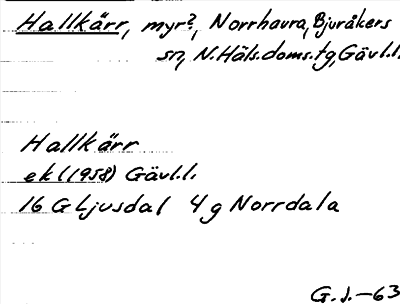 Hallkärr, myr?, Norrhavra, Bjuråkers
sn, N. Häls. doms. tg, Gävl.l.
Hallkärr
ekl (1958) Gävl.l.
16 G Ljusdal 4 g Norrdala
G.J.-63